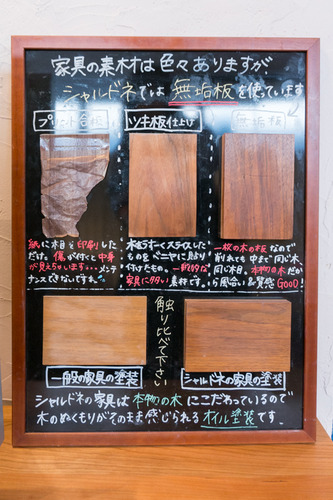 家具の素材は色々ありますが
シャルドネでは無垢板を使っています
プリント合板
ツキ板仕上げ
無垢板
紙に木目を印刷した
だけ。傷が付くと中身
が見えちゃいます・・・メンテ
ナンスできないですね。
木をうすくスライスした
ものをベニヤに貼り
付けたもの。一般的な
家具に多い素材です。
一枚の木の板なので
削れても中まで同じ木、
同じ木目。本物の木だか
ら風合い&質感GOOD!
触り比べて下さい
一般の家具の塗装
シャルドネの家具の塗装
シャルドネの家具は本物の木にこだわっているので
木のぬくもりがそのまま感じられるオイル塗装です。